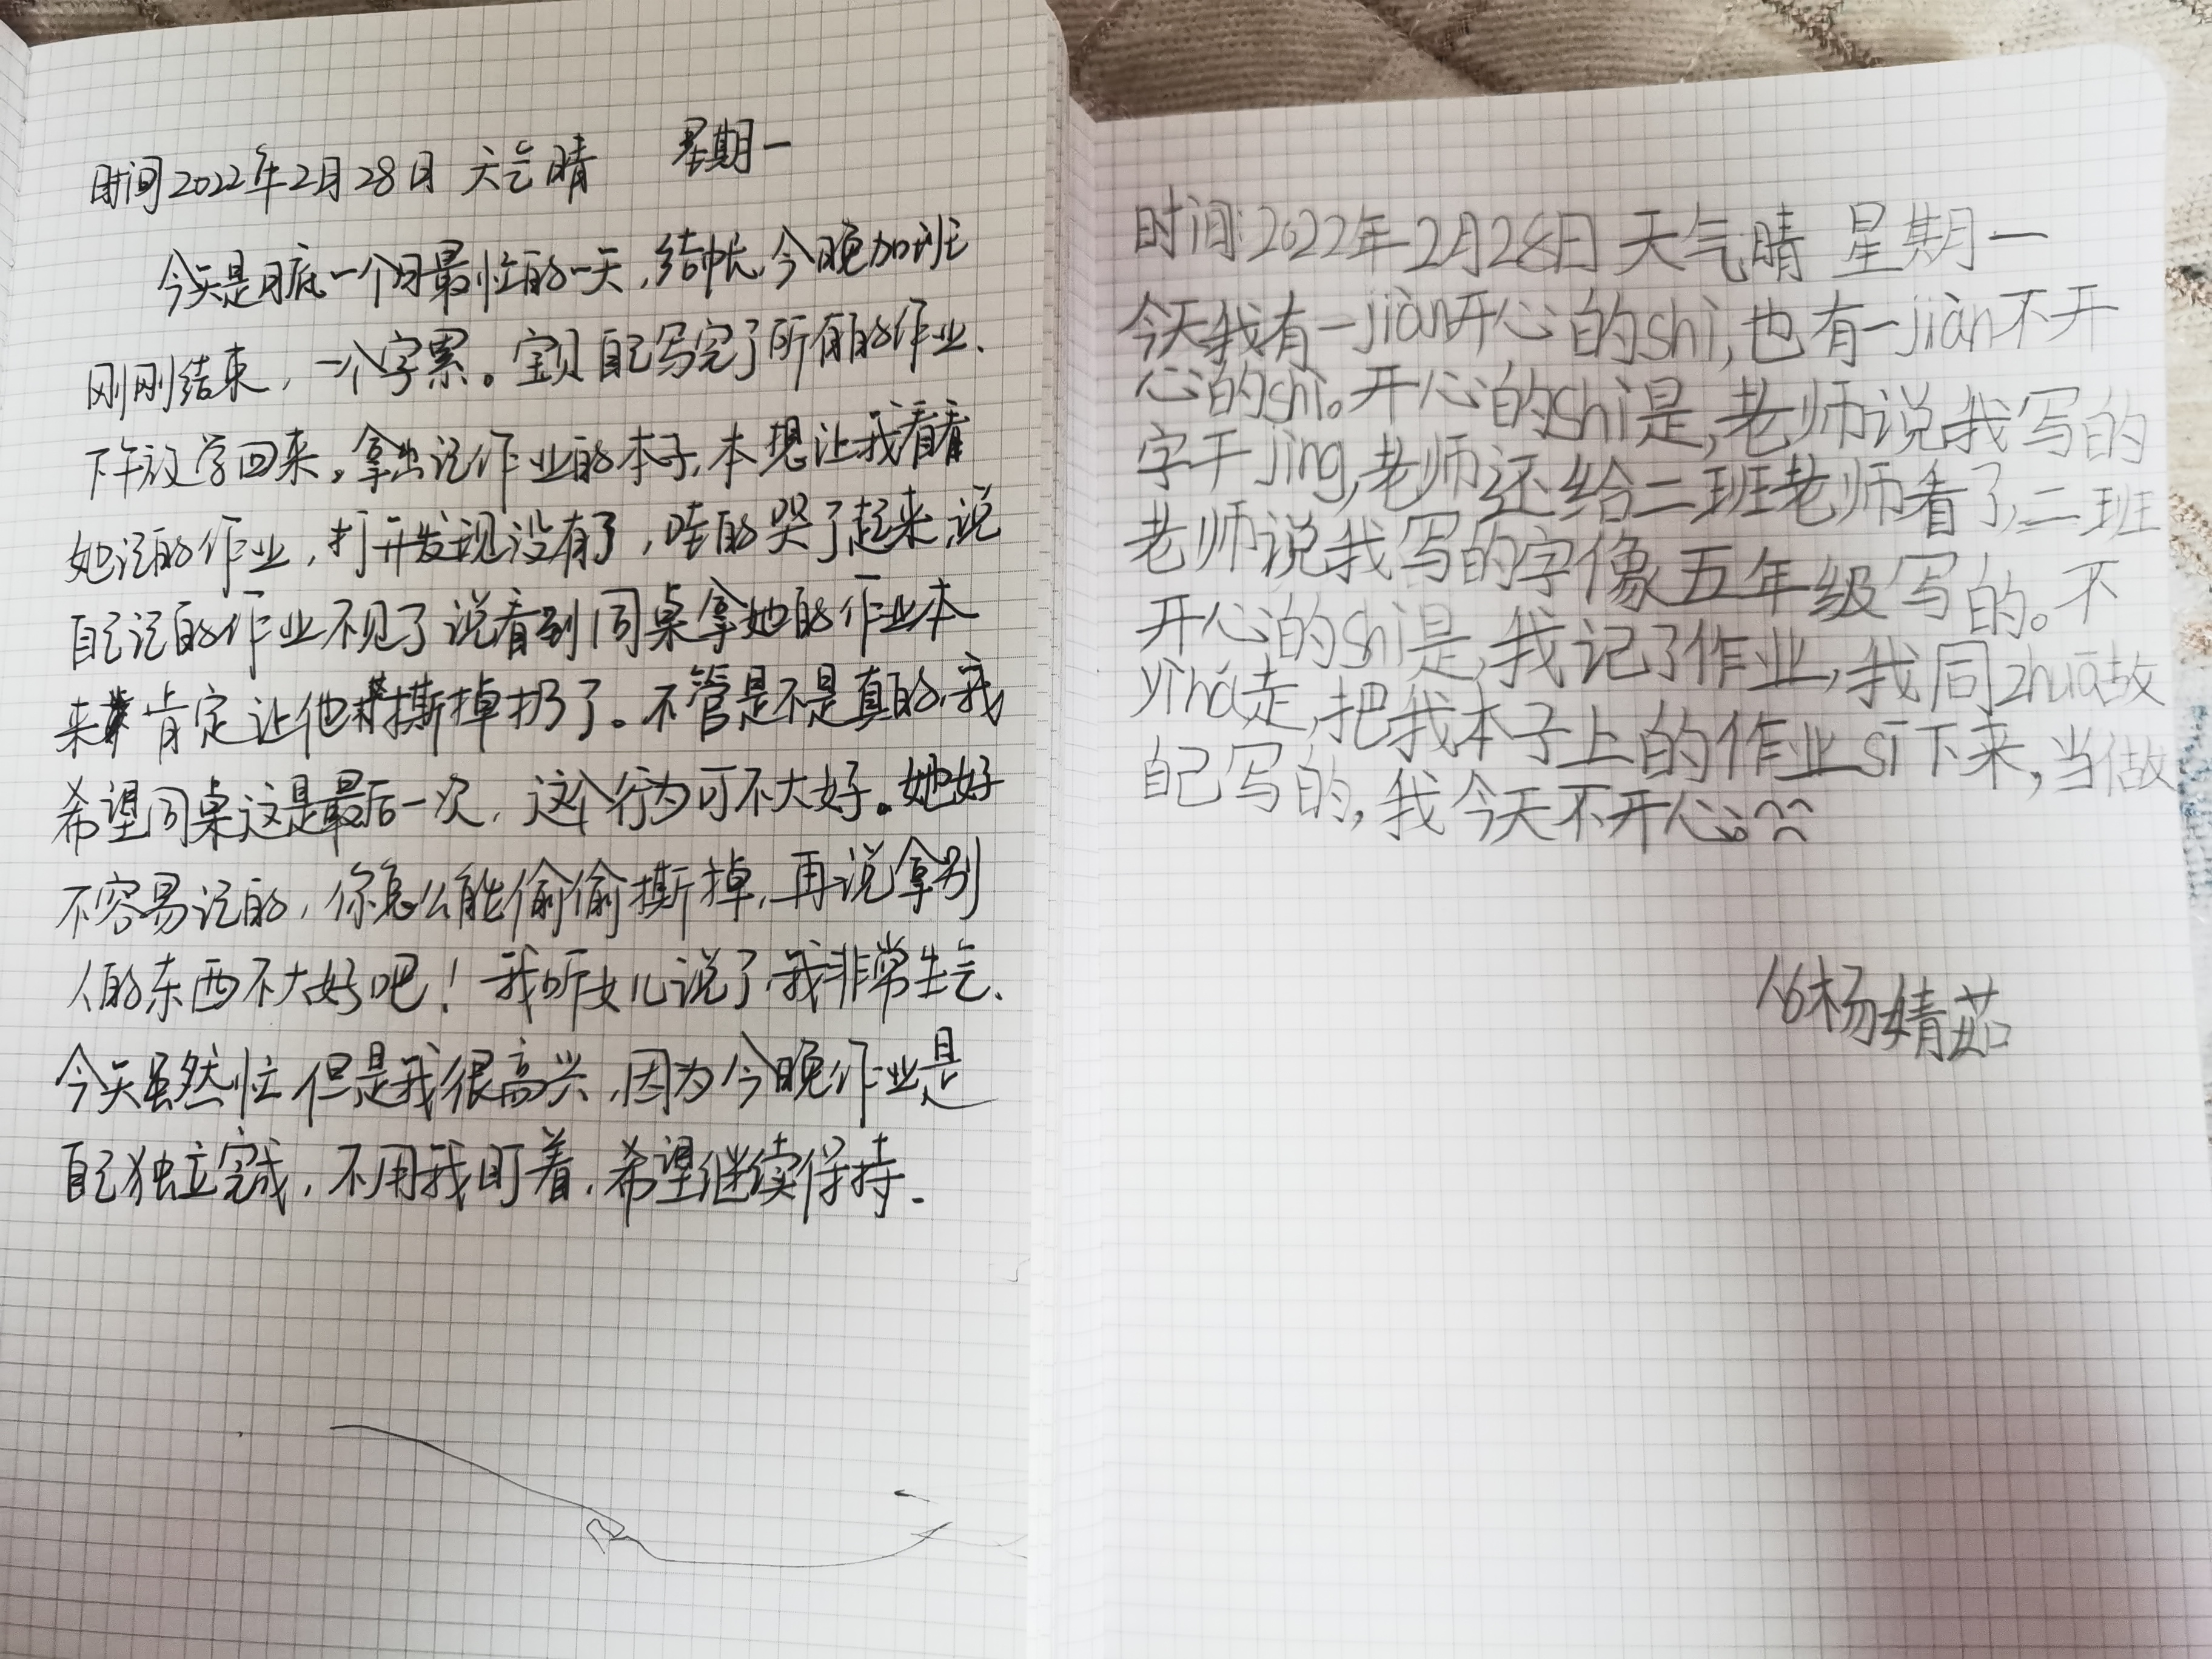 时间2022年2月28日 天气晴 星期一
今天是月底一个月最忙的一天,结帐,今晚加班
刚刚结束,一个字累。宝贝自己写完了所有的作业、
下午放学回来,拿出记作业的本子,本想让我看看
她记的作业,打开发现没有了,哇的哭了起来,说
自己记的作业不见了说看到同桌拿她的作业本
来 肯定让他撕掉扔了。不管是不是真的,我
希望同桌这是最后一次,这个行为可不大好。她好
不容易记的,你怎么能偷偷撕掉,再说拿别
人的东西不大好吧!我听女儿说了,我非常生气、
今天虽然忙但是我很高兴,因为今晚作业是
自己独立完成,不用我盯着,希望继续保持.
时间:2022年2月28日 天气晴 星期一
今天我有一jiàn开心的shì,也有一jiàn不开
心的shì。开心的shì是,老师说我写的
字干jìng,老师还给二班老师看了,二班
老师说我写的字像五年级写的。不
开心的shì是,我记了作业,我同zhuō故
yì ná走,把我本子上的作业sī下来,当做
自己写的,我今天不开心
杨婧茹